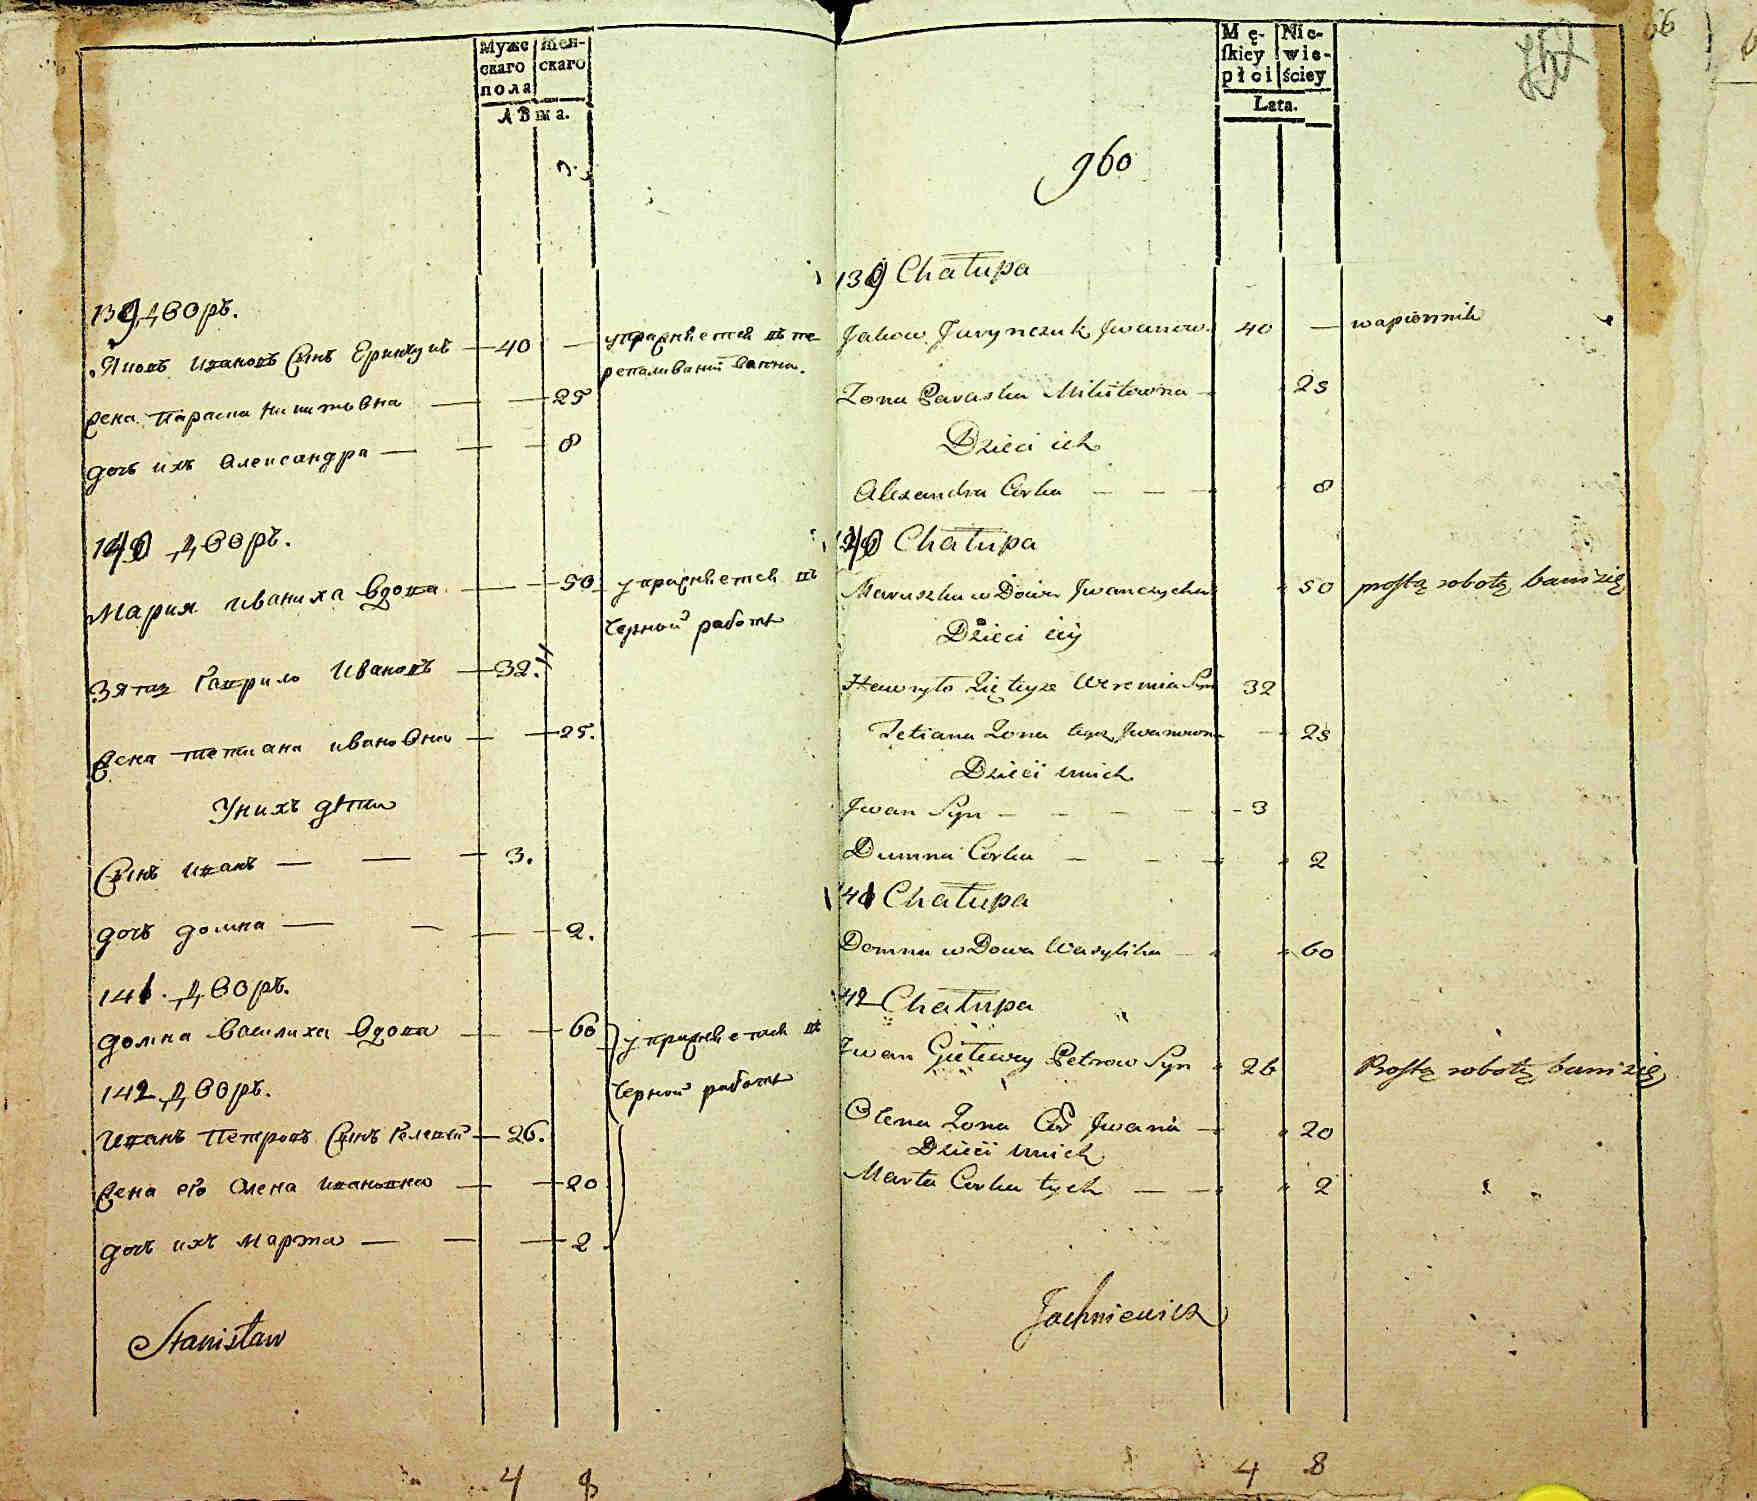 Муже
скаго
пола
Жен-
скаго
Лѣта.
139 дворъ.
Яковъ Ивановъ Сынъ — 40 — упражняется въ пе
репаливании вапна.
Жена Параска Никитовна — 25
дочь ихъ Александра — 8
140 дворъ.
Мария Иваниха вдова — 50 упражняется въ
черной работѣ
Зять Гаврило Ивановъ — 32.
Жена Тетиана Ивановна — 25.
У нихъ дѣти
Сынъ Иванъ — 3.
дочь домна — 2.
141. дворъ.
домна Василиха вдова — 60 упражняется въ
142 дворъ.
черной работѣ
Иванъ Петровъ Сынъ — 26.
Жена его Олена Ивановна — 20
дочь ихъ Марта — 2
Stanisław
4 8
66
Mę-
skiey
płci
Nie-
wie-
ściey
Lata.
960
139 Chałupa
Jakow Jurynczuk Jwanow. 40 — wapiennik
Zona Paraska Mikitowna — 25
Dzieci ich
Alexandra Corka — — — 8
140 Chałupa
Maruszka wDowa Jwanczycha 50 prostą robotą bawi się
Dzieci iey
Hawryło Zięć Weremia Syn 32
Tetiana Zona tegoż Jwanowna — 25
Dzieci unich
Jwan Syn — 3
Dumna Corka — 2
141 Chałupa
Domna wDowa Wasylika — 60
142 Chałupa
Jwan Petrow Syn 26 Prostą robotą bawi się
Olena Zona Jwana — 20
Dzieci unich
Marta Corka tych — — 2
Jachniewicz
4 8